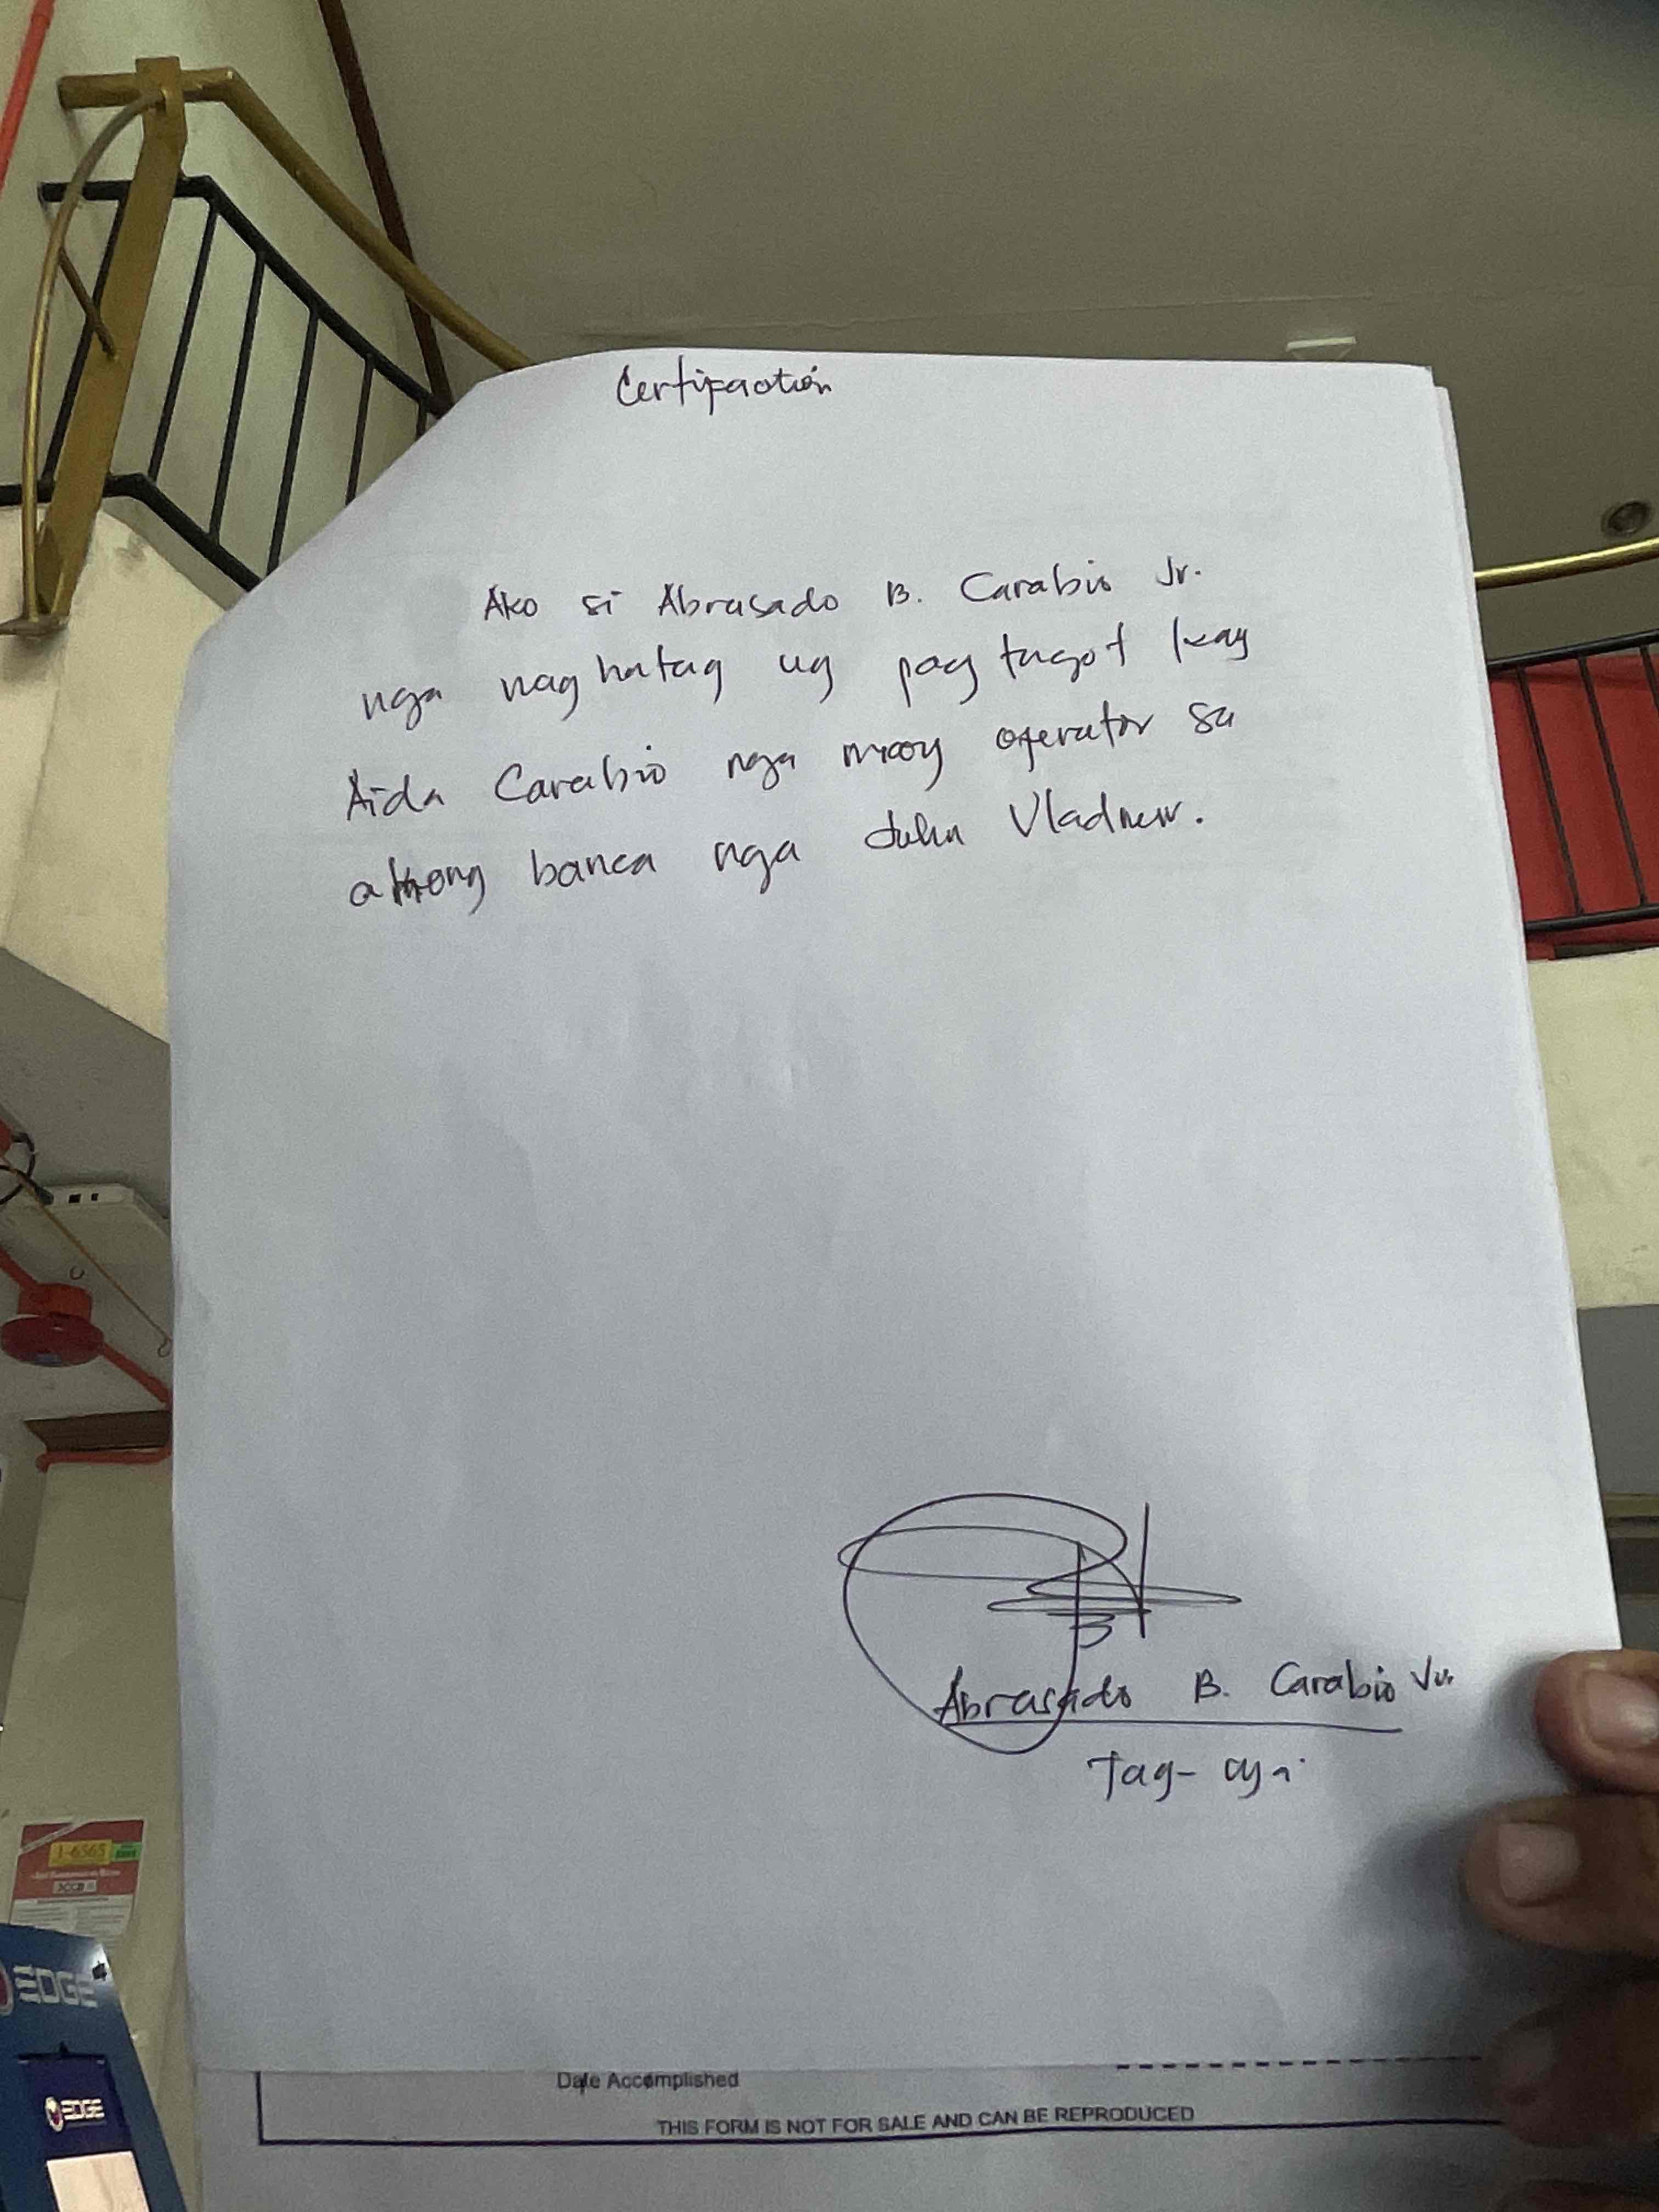 Certifaction
Ako si Abrasado B. Carabio Jr.
nga naghatag ug pagtugot kay
Aida Carabio nga maoy operator sa
akong banca nga John Vladnew.
Abrasado B. Carabio Jr.
Tag-aya
Date Accomplished
THIS FORM IS NOT FOR SALE AND CAN BE REPRODUCED
1-6565
EDGE
EDGE